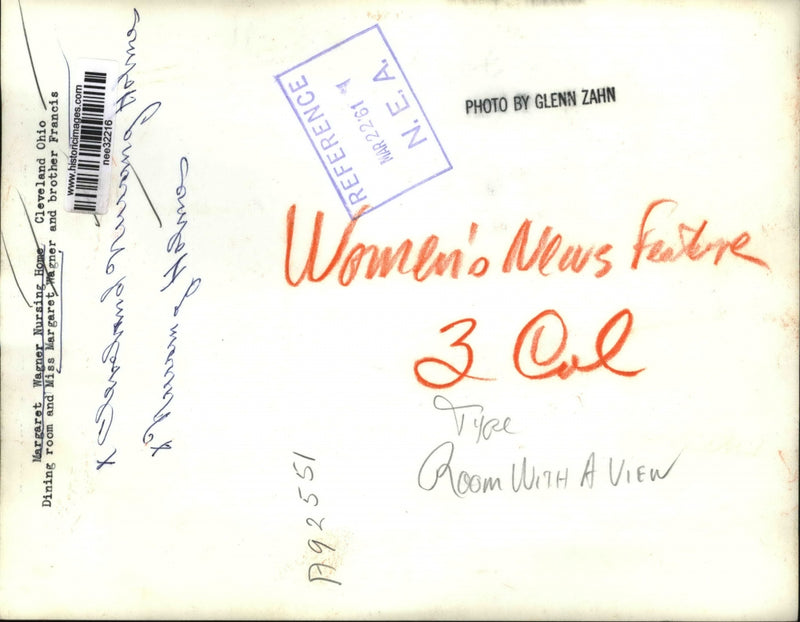 Margaret Wagner Nursing Home Cleveland Ohio
Dining room and Miss Margaret Wagner and brother Francis
www.historicimages.com
nee32216
x Cleveland Nursing Homes
x Nursing Homes
REFERENCE
MAR 22 '61
N. E. A.
PHOTO BY GLENN ZAHN
Women's News Feature
3 Col
Type
ROOM WITH A VIEW
A92551